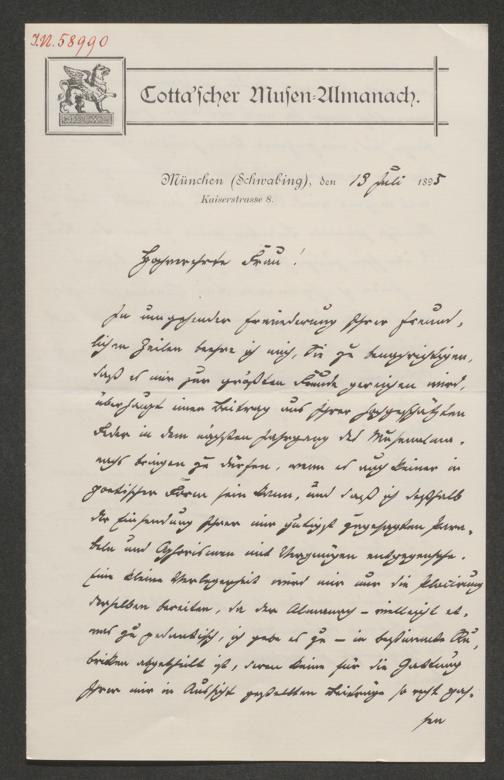 J.N. 58990
Cotta'scher Musen-Almanach.
München (Schwabing), den 13 Juli 1895
Kaiserstrasse 8.
Hochverehrte Frau!
In umgehender Erwiederung Ihrer freund-
lichen Zeilen beehre ich mich, Sie zu benachrichtigen,
daß es mir zur größten Freude gereichen wird,
überhaupt einen Beitrag aus Ihrer hochgeschätzten
Feder in dem nächsten Jahrgang des Musenalma-
nachs bringen zu dürfen, wenn es auch keiner in
poetischer Form sein kann, und daß ich deßhalb
der Einsendung Ihrer mir gütigst zugesagten Para-
beln und Aphorismen mit Vergnügen entgegensehe.
Eine kleine Verlegenheit wird mir nur die Placirung
derselben bereiten, da der Almanach – vielleicht et-
was zu pedantisch, ich gebe es zu – in bestimmte Ru-
briken abgetheilt ist, deren keine für die Gattung
Ihrer mir in Aussicht gestellten Beiträge so recht pas-
sen